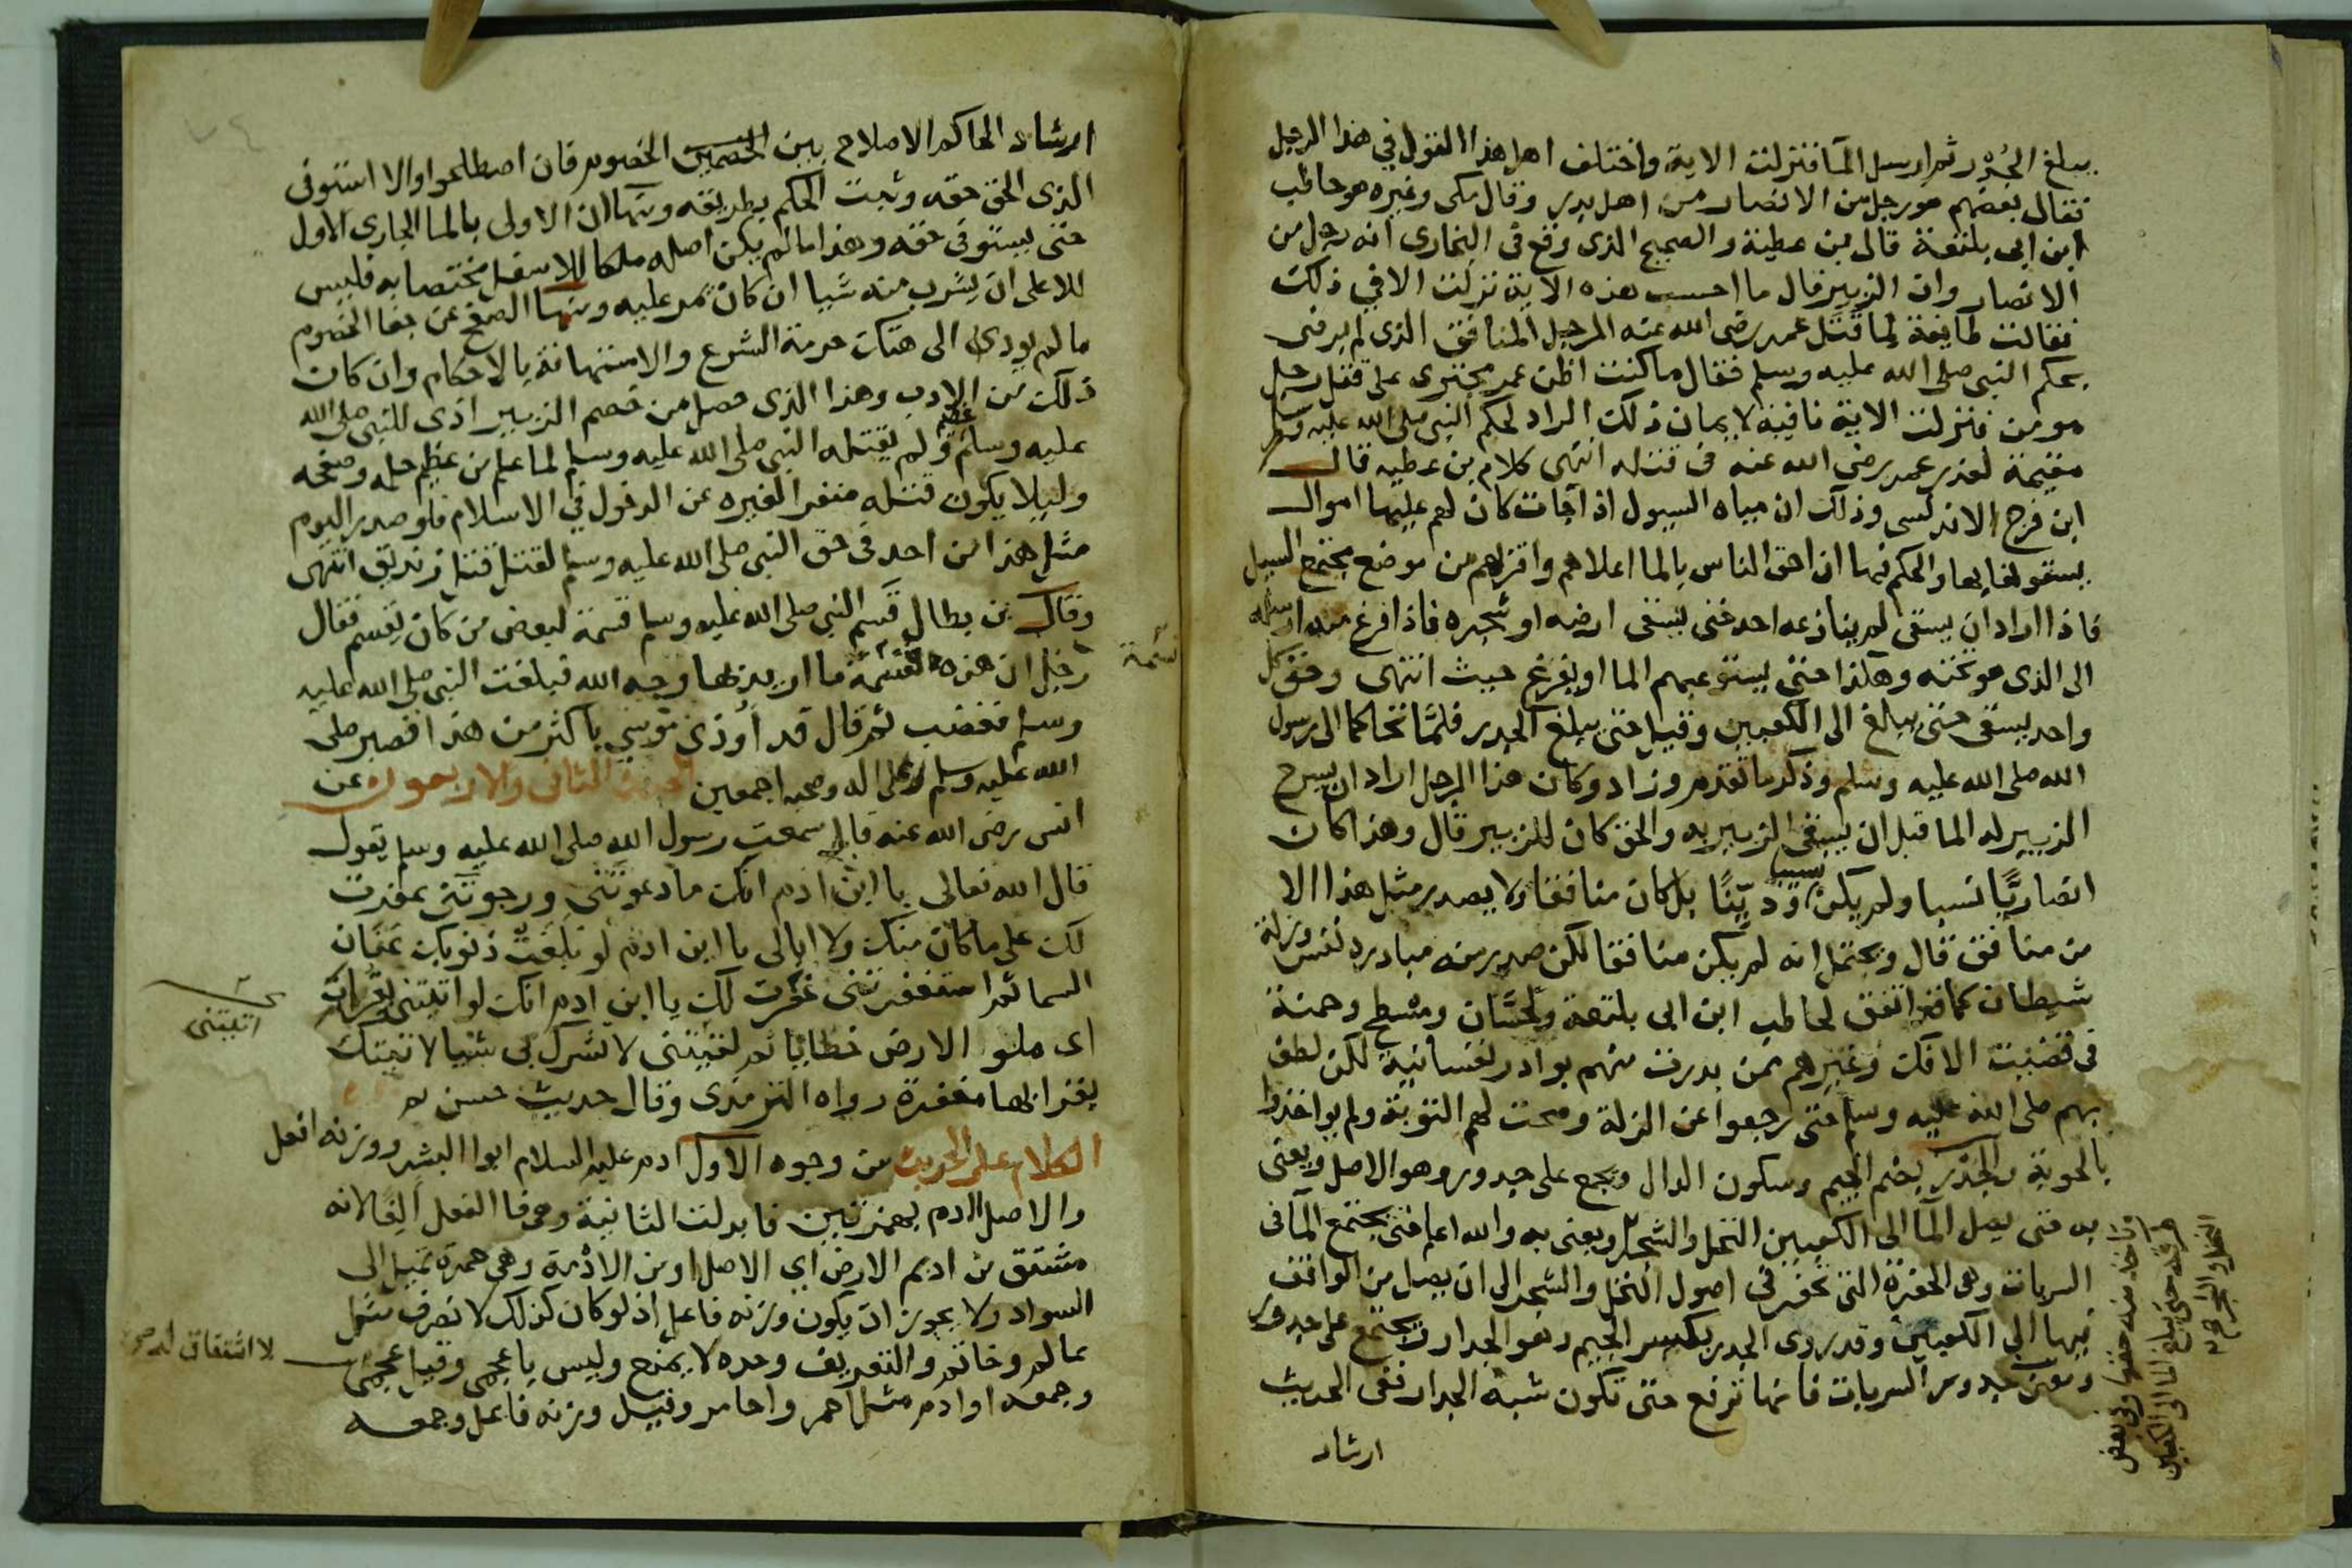 يبلغ الجُدْر ثم ارسل المآ فنزلت الاية واختلف اهل هذا القول في هذا الرجل
فقال بعضهم هو رجل من الانصار من اهل بدر وقال مكى وغيره هو حاطب
ابن ابى بلتعة قال بن عطية والصحيح الذى وقع فى البخارى انه رجل من
الانصار وان الزبير قال ما احسب هذه الآية نزلت الا في ذلك
فقالت طايفة لما قتل عمر رضى الله عنه الرجل المنافق الذى لم يرضى
بحكم النبى صلى الله عليه وسلم فقال ما كنت اظن عمر يجترى على قتل رجل
مومن فنزلت الاية نافية لايمان ذلك الراد لحكم النبى صلى الله عليه وسلم
مقيمة لعذر عمر رضى الله عنه فى قتله انتهى كلام بن عطيه قال
ابن فرح الاندلسى وذلك ان مياه السيول اذا جات كان لهم عليها اموال
يسقونها بها والحكم فيها ان احق الناس بالما اعلاهم واقربهم من موضع يجتمع السيل
فاذا اراد ان يسقى لم ينازعه احد حتى يسقى ارضه او شجره فاذا فرغ منه ارسله
الى الذى هو تحته وهكذا حتى يستوعبهم الما او يفرغ حيث انتهى وحق كل
واحد يسقى حتى يبلغ الى الكعبين وقيل حتى يبلغ الجدر فلمّا تحاكما الى رسول
الله صلى الله عليه وسلم وذكر ما تقدم وزاد وكان هذا الرجل اراد ان يسرح
الزبير له الما قبل ان يسقى الزبير به والحق كان للزبير قال وهذا كان
انصاريًّا نسبا ولم يكن ودِيْنًا بل كان منافقا ولا يصدر مثل هذا الا
من منافق قال ويحتمل انه لم يكن منافقا لكن صدر منه مبادرة نفس وزلة
شيطان كما قد اتفق لحاطب ابن ابى بلتعة ولحسَّان ومسْطح وحمنة
فى قضيت الافك وغيرهم ممن بدرت منهم بوادر نفسانية لكن لطف
بهم صلى الله عليه وسلم حتى رجعوا عن الزلة وصحت لهم التوبة ولم يواخذوا
بالحوبة والجُدْر بضم الجيم وسكون الدال ويجمع على جدور وهو الاصل ويعنى
به حتى يصل المآ الى الكعبين النخل والشجر ويعنى به والله اعلم حتى يجتمع المآ فى
السربات وهى الحفرة التى تحفر في اصول النخل والشجر الى ان يصل من الواقف
فيها الى الكعبين وقد روى الجدر بكسر الجيم وهو الجدار ويجتمع على جدور
ومعنى جدور السربات فانها ترفع حتى تكون شبه الجدار ففى الحديث
ارشاد
ارشاد الحاكم الاصلاح بين الخصمين الخصوم فان اصطلحوا والا استوفى
الذى الحق حقه وثبت الحكم بطريقه ومنها ان الاولى بالما الجارى الاول
حتى يستوفى حقه وهذا ما لم يكن اصله ملكا للاسفل مختصا به فليس
للاعلى ان يشرب منه شيا ان كان يمر عليه ومنها الصفح عن جفا الخصوم
ما لم يودى الى هتك حرمة الشرع والاستهانة بالاحكام وان كان
ذلك من الادب وهذا الذى حصل من خصم الزبير اذى للنبى صلى الله
عليه وسلم ولم يقتله النبى صلى الله عليه وسلم لما علم من عظيم حلمه وصفحه
وليلا يكون قتله منفرا لغيره عن الدخول في الاسلام فلو صدر اليوم
مثل هذا من احد فى حق النبى صلى الله عليه وسلم لقتل قتل زنديق انتهى
وقال بن بطال قسم النبى صلى الله عليه وسلم قسمة لبعض من كان يقسم فقال
رجل ان هذه القسمة ما اريد بها وجه الله فبلغت النبى صلى الله عليه
وسلم فغضب ثم قال قد أُوذى موسى باكثر من هذا فصبر صلى
الله عليه وسلم وعلى اله وصحبه اجمعين الحديث الثانى والاربعون عن
انس رضى الله عنه قال سمعت رسول الله صلى الله عليه وسلم يقول
قال الله تعالى يا ابن ادم انك ما دعوتنى ورجوتنى غفرت
لك على ما كان منك ولا ابالى يا ابن ادم لو بلغت ذنوبك عنان
السما ثم استغفرتنى غفرت لك يا ابن ادم انك لو اتيتنى بقراب
اى ملو الارض خطايا ثم لقيتنى لا تشرك بى شيا لاتيتك
بقرابها مغفرة رواه الترمذى وقال حديث حسن
الكلام على الحديث من وجوه الاول ادم عليه السلام ابوا البشر ووزنه افعل
والاصل اادم بهمزتين فابدلت الثانية وهى فا الفعل اَلِفًا لانه
مشتق من اديم الارض اى الاصل او من الادْمة وهى حمرة تميل الى
السواد ولا يجوز ان يكون وزنه فاعل اذ لو كان كذلك لانصرف مثل
عالم وخاتم والتعريف وحده لا يمنع وليس باعجمى وقيل عجمى
وجمعه اوادم مثل احمر واحامر وقيل وزنه فاعل وجمعه
اتيتنى
لا اشتقاق له صح